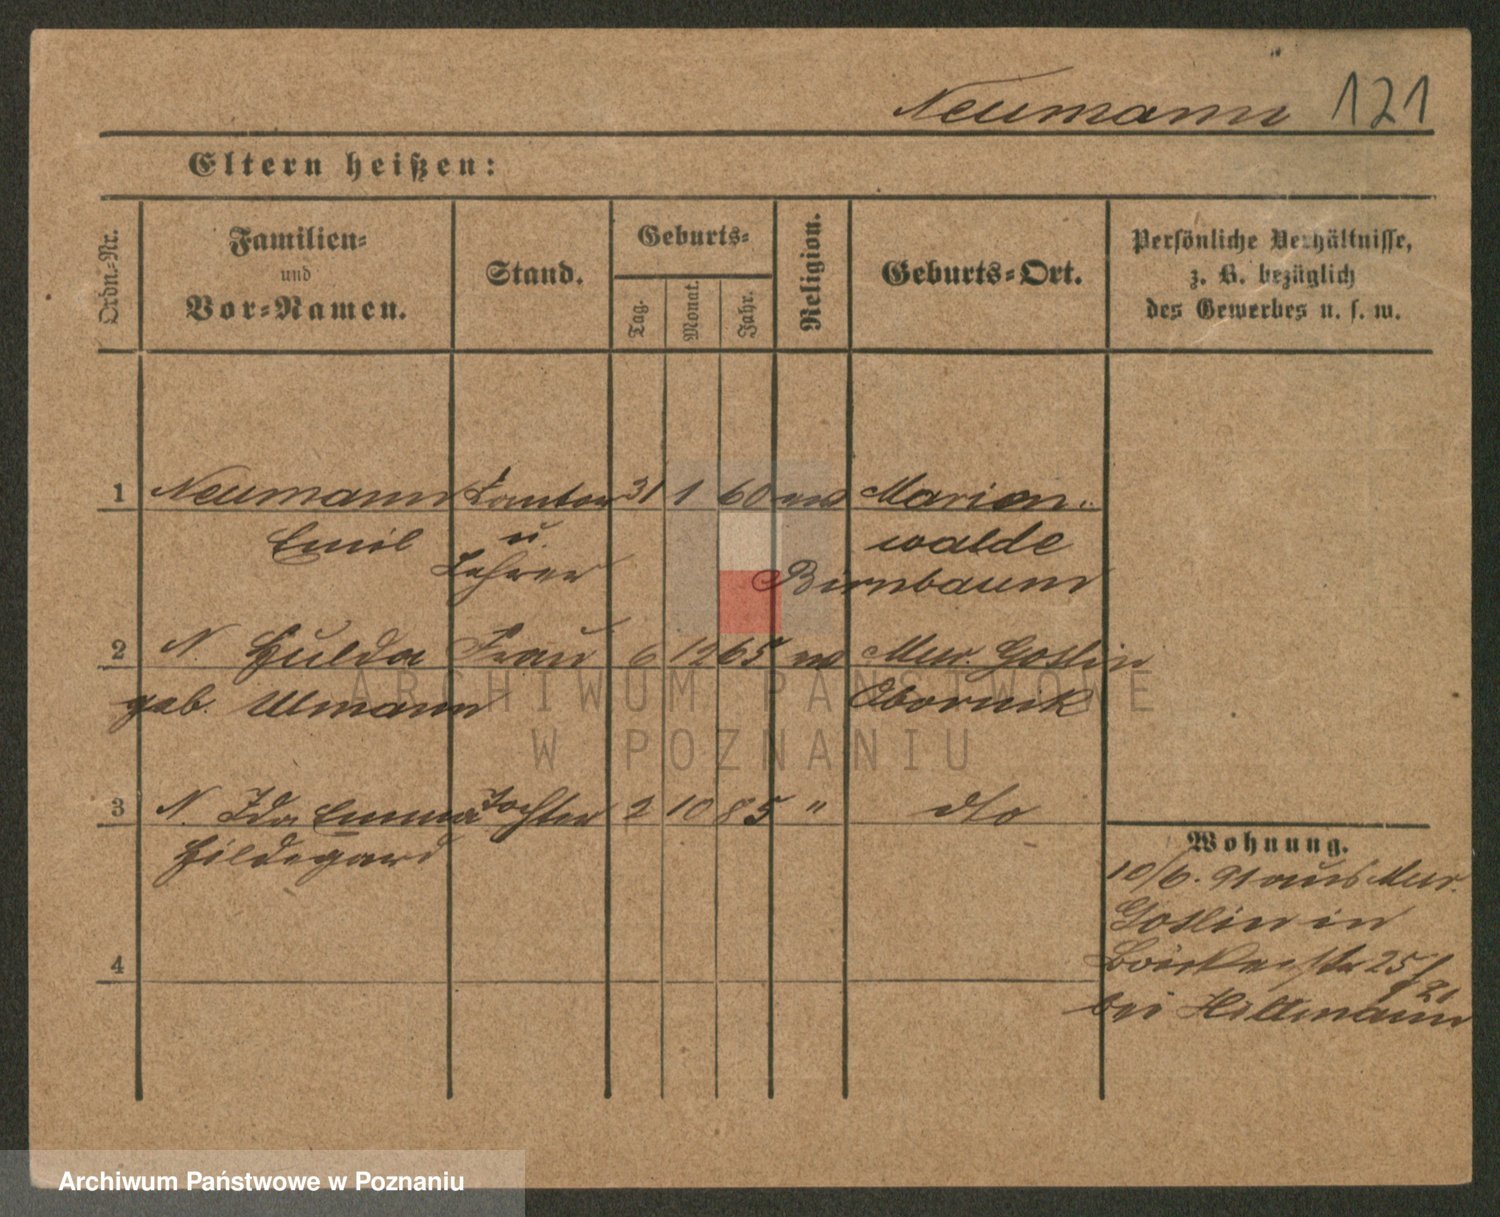 Neumann 121
Eltern heißen:
Ordn.-Nr.
Familien-
und
Vor-Namen.
Stand.
Geburts-
Tag.
Monat.
Jahr.
Religion.
Geburts-Ort.
Persönliche Verhältnisse,
z. B. bezüglich
des Gewerbes u. s. w.
1 Neumann Kantor 31 1 60 Marien-
Emil u. walde
Lehrer Birnbaum
2 N. Hulda Frau 6 12 65 Mur. Goslin
geb. Ulmann Obornik
3 N. Ida Emma Tochter 2 10 85 " dto
Hildegard
Wohnung.
10/6. 91 aus Mur.
Goslin in
25
bei
4
ARCHIWUM PAŃSTWOWE
W POZNANIU
Archiwum Państwowe w Poznaniu